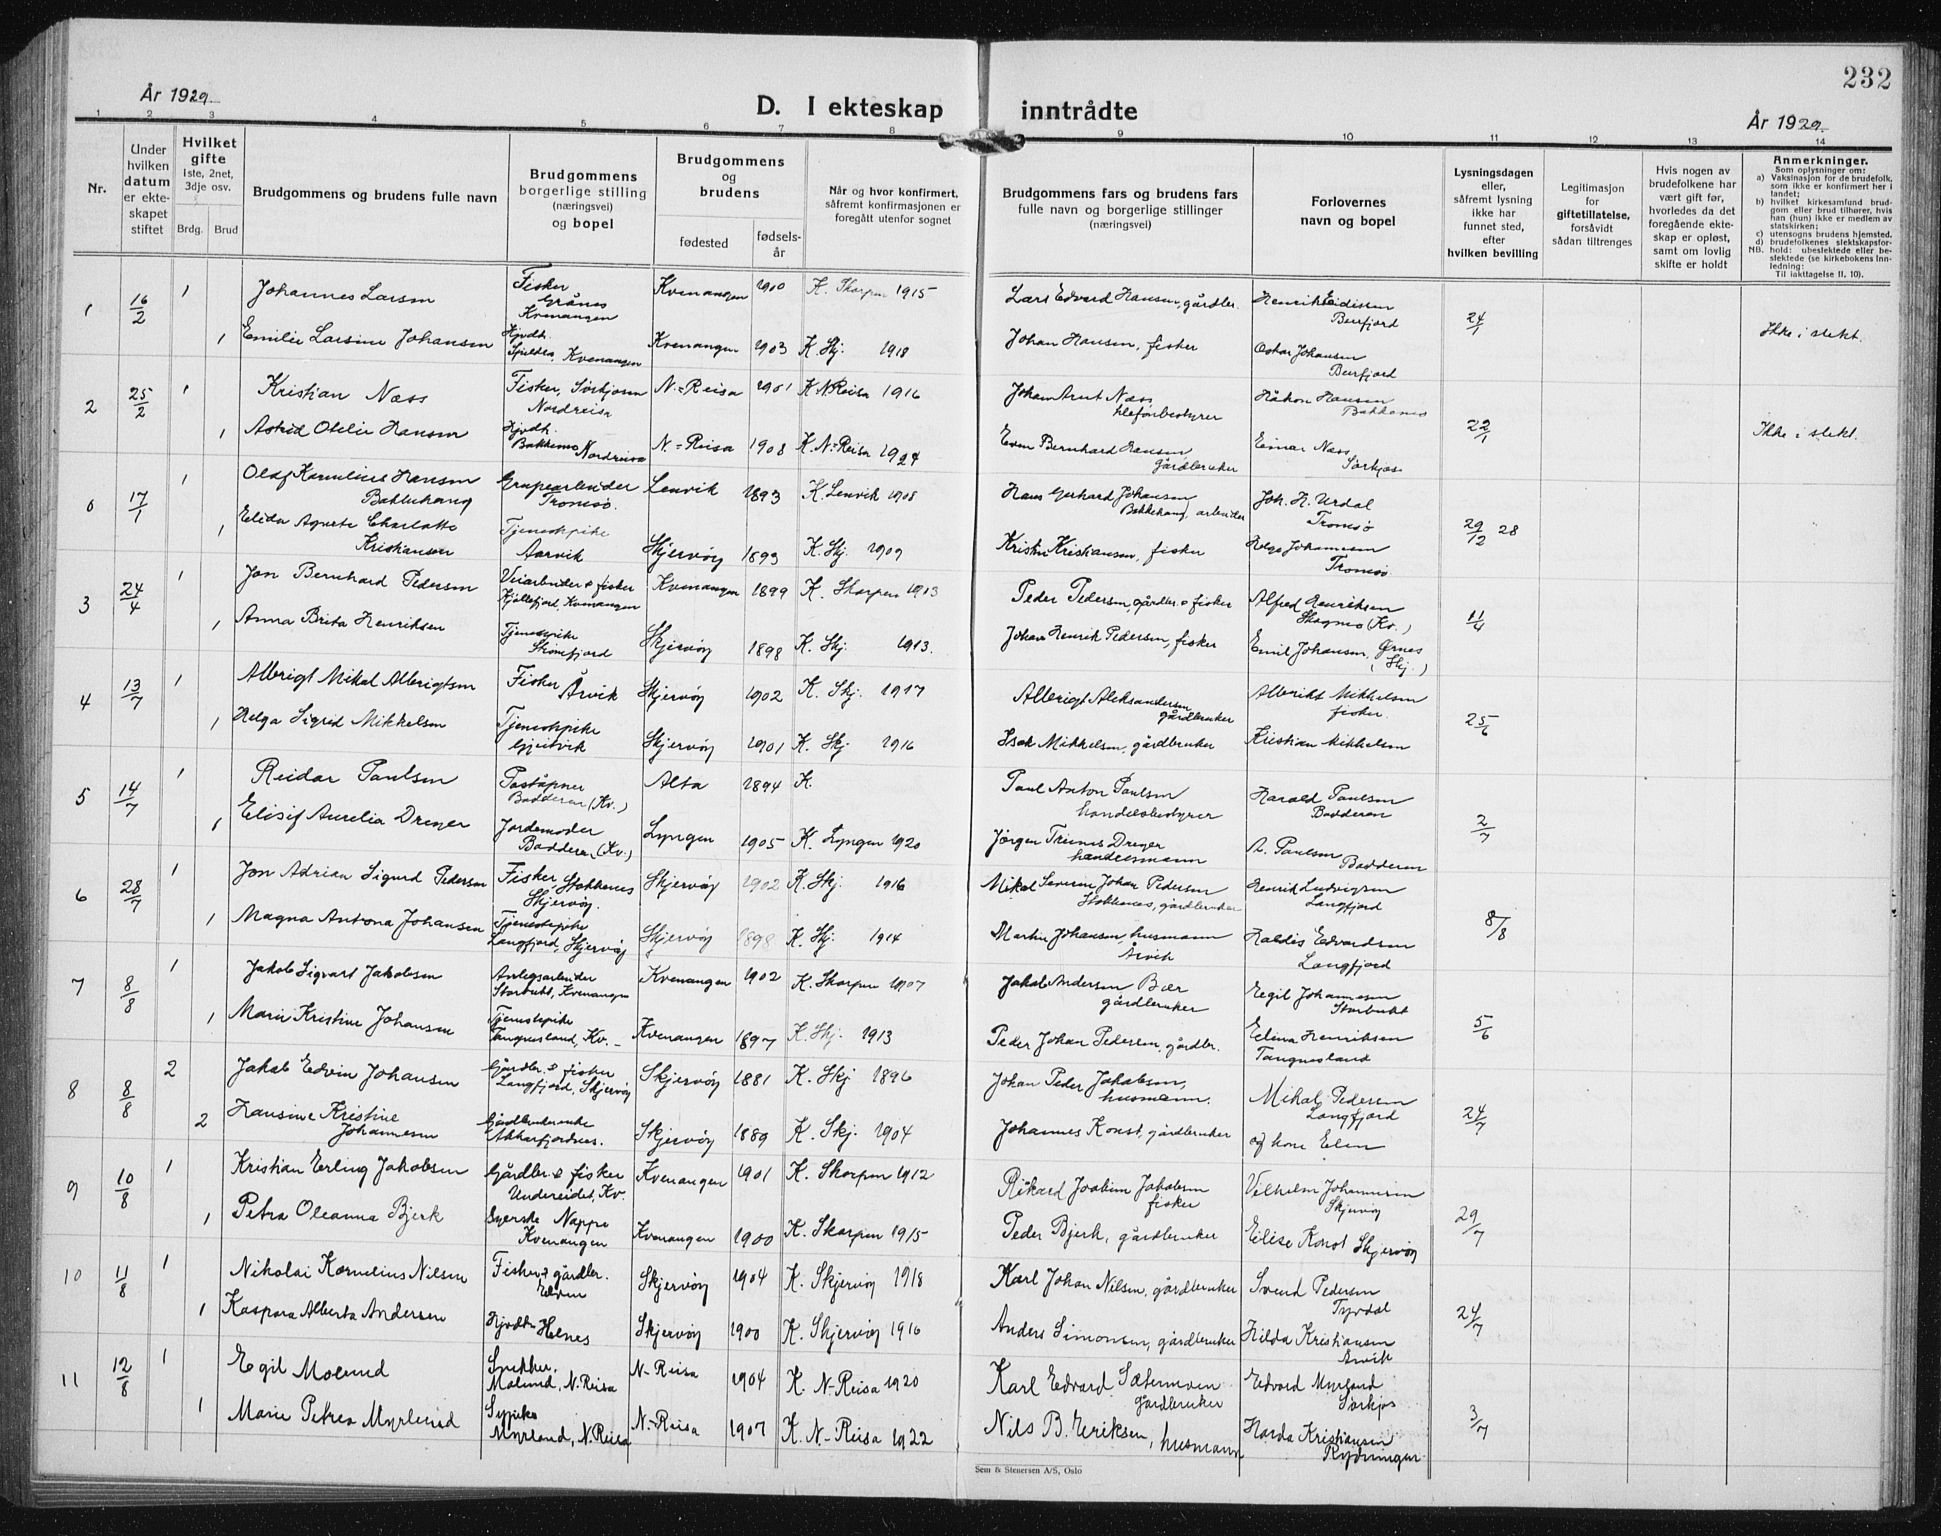 232
År 1929.
D. I ekteskap inntrådte
År 1929.
1 2 3 4 5 6 7 8 9 10 11 12 13 14
Nr.
Under hvilken datum er ekteskapet stiftet
Hvilket gifte
1ste, 2net, 3dje osv.
Brdg. Brud
Brudgommens og brudens fulle navn
Brudgommens borgerlige stilling (næringsvei) og bopel
Brudgommens og brudens
fødested
fødselsår
Når og hvor konfirmert, såfremt konfirmasjonen er foregått utenfor sognet
Brudgommens fars og brudens fars fulle navn og borgerlige stillinger (næringsvei)
Forlovernes navn og bopel
Lysningsdagen eller, såfremt lysning ikke har funnet sted, efter hvilken bevilling
Legitimasjon for giftetillatelse, forsåvidt sådan tiltrenges
Hvis nogen av brudefolkene har vært gift før, hvorledes da det foregående ekteskap er opløst, samt om lovlig skifte er holdt
Anmerkninger.
Som oplysninger om:
a) Vaksinasjon for de brudefolk, som ikke er konfirmert her i landet;
b) hvilket kirkesamfund brudgom eller brud tilhører, hvis han (hun) ikke er medlem av statskirken;
c) utensogns brudens hjemsted.
d) brudefolkenes slektskapsforhold: ubeslektede eller beslektede (se kirkebokens Innledning:
NB. Til iakttagelse II, 10).
1 16/2 1 Johannes Larsen Fisker Grånes Kvenangen Kvenangen 1900 K. Skorpen 1915 Lars Edvard Hansen, gårdbr. Henrik Eidissen Burfjord 24/1
1 Emilie Larsine Johansen Hjvdt. Spildra, Kvenangen Kvenangen 1903 K. Skj. 1918 Johan Hansen, fisker Oskar Johansen Burfjord Ikke i slekt.
2 25/2 1 Kristian Næss Fisker, Sørkjosen Nordreisa N.-Reisa 1901 K. N. Reisa 1916 Johan Arnt Næss, telefonbestyrer Håkon Hansen Bakkenes 22/1
1 Astrid Otelie Hansen Hjvdt. Bakkenes Nordreisa N.-Reisa 1908 K. N.-Reisa 1924 Even Bernhard Hansen gårdbruker Einar Næss Sørkjos Ikke i slekt.
0 17/1 1 Olaf Kornelius Hansen Bakkehaug Grupearbeider Tromsø. Lenvik 1893 K. Lenvik 1908 Hans Gerhard Johansen Bakkehaug, arbeider Joh. H. Urdal Tromsø 29/12 28
1 Elida Agnete Charlotte Kristiansen Tjenestepike Aarvik Skjervöy 1893 K. Skj. 1909 Kristen Kristiansen, fisker Helge Johannesen Tromsø.
3 24/4 1 Jon Bernhard Pedersen Veiarbeider & fisker Kjøllefjord, Kvenangen Kvenangen 1899 K. Skorpen 1913 Peder Pedersen, gårdbr. & fisker Alfred Henriksen Skognes (Kv.) 11/4
1 Anna Brita Henriksen Tjenestepike Skønnfjord Skjervöy 1898 K. Skj. 1913. Johan Henrik Pedersen, fisker Emil Johansen, Ørnes (Skj.)
4 13/7 1 Albrigt Mikal Albrigtsen Fisker Årvik Skjervöy 1902 K. Skj. 1917 Albrigt Aleksandersen gårdbruker Albrikt Mikkelsen fisker. 25/6
1 Helga Sigrid Mikkelsen Tjenestepike Gjeitvik Skjervöy 1901 K. Skj. 1916 Isak Mikkelsen, gårdbruker Kristian Mikkelsen
5 14/7 1 Reidar Paulsen Poståpner Badderen (Kv.) Alta 1894 K. Paul Anton Paulsen handelsbestyrer Harald Paulsen Badderen 2/7
1 Elisif Aurelia Dreyer Jordemoder Badderen (Kv.) Lyngen 1905 K. Lyngen 1920 Jørgen Dreyer handelsmann A. Paulsen Badderen
6 28/7 1 Jon Adrian Sigurd Pedersen Fisker, Stokkenes Skjervöy. Skjervöy 1902 K. Skj. 1916 Mikal Severin Johan Pedersen Stokkenes, gårdbruker Henrik Ludvigsen Langfjord 8/8
1 Magna Antona Johansen Tjenestepike Langfjord, Skjervöy Skjervöy 1898 K. Skj. 1914 Martin Johansen, husmann Årvik Haldis Edvardsen Langfjord
7 8/8 1 Jakob Sigvart Jakobsen Anlegsarbeider Storbukt, Kvenangen Kvenangen 1902 K. Skorpen 1907 Jakob Andersen Bær gårdbruker Egil Johannesen Storbukt 5/6
1 Marie Kristine Johansen Tjenestepike Tangnesland, Kv. Kvenangen 1897 K. Skj. 1913 Peder Johan Pedersen, gårdbr. Elina Henriksen Tangnesland
8 8/8 2 Jakob Edvin Johansen Gårdbr. & fisker Langfjord, Skjervöy Skjervöy 1881 K. Skj 1896 Johan Peder Jakobsen, husmann. Mikal Pedersen Langfjord 24/7
2 Hansine Kristine Johannesen Gårdbrukerenke Akkarfjordnes. Skjervöy 1889 K. Skj. 1904 Johannes Konst, gårdbruker og kone Elen
9 10/8 1 Kristian Erling Jakobsen Gårdbr. & fisker Undereidet, Kv. Kvenangen 1901 K. Skorpen 1912 Rikard Joakim Jakobsen fisker Vilhelm Johannesen Skjervöy 29/7
1 Petra Oleanna Bjerk Syerske Nappe Kvenangen Kvenangen 1900 K. Skorpen 1915 Peder Bjerk, gårdbruker Elise Konst Skjervöy
10 11/8 1 Nikolai Kornelius Nilsen Fisker & gårdbr. Elven Skjervöy 1904 K. Skjervöy 1918 Karl Johan Nilsen, gårdbruker Svend Pedersen Tyvdal 24/7
1 Kaspara Alberta Andersen Hjvdt. Helnes Skjervöy 1900 K. Skjervöy 1916 Anders Simonsen, gårdbruker Hilda Kristiansen Arvik
11 12/8 1 Egil Molund Snekker. Molund, N. Reisa N-Reisa 1904 K. N-Reisa 1920 Karl Edvard Sætermoen Gårdbruker Edvard Myrland Sørkjos 3/7
1 Marie Petrea Myrlund Sypike Myrland, N. Reisa N.-Reisa 1907 K. N-Reisa 1922 Nils B. Eriksen, husmann Harda Kristiansen Rydningen
Sem & Stenersen A/S, Oslo